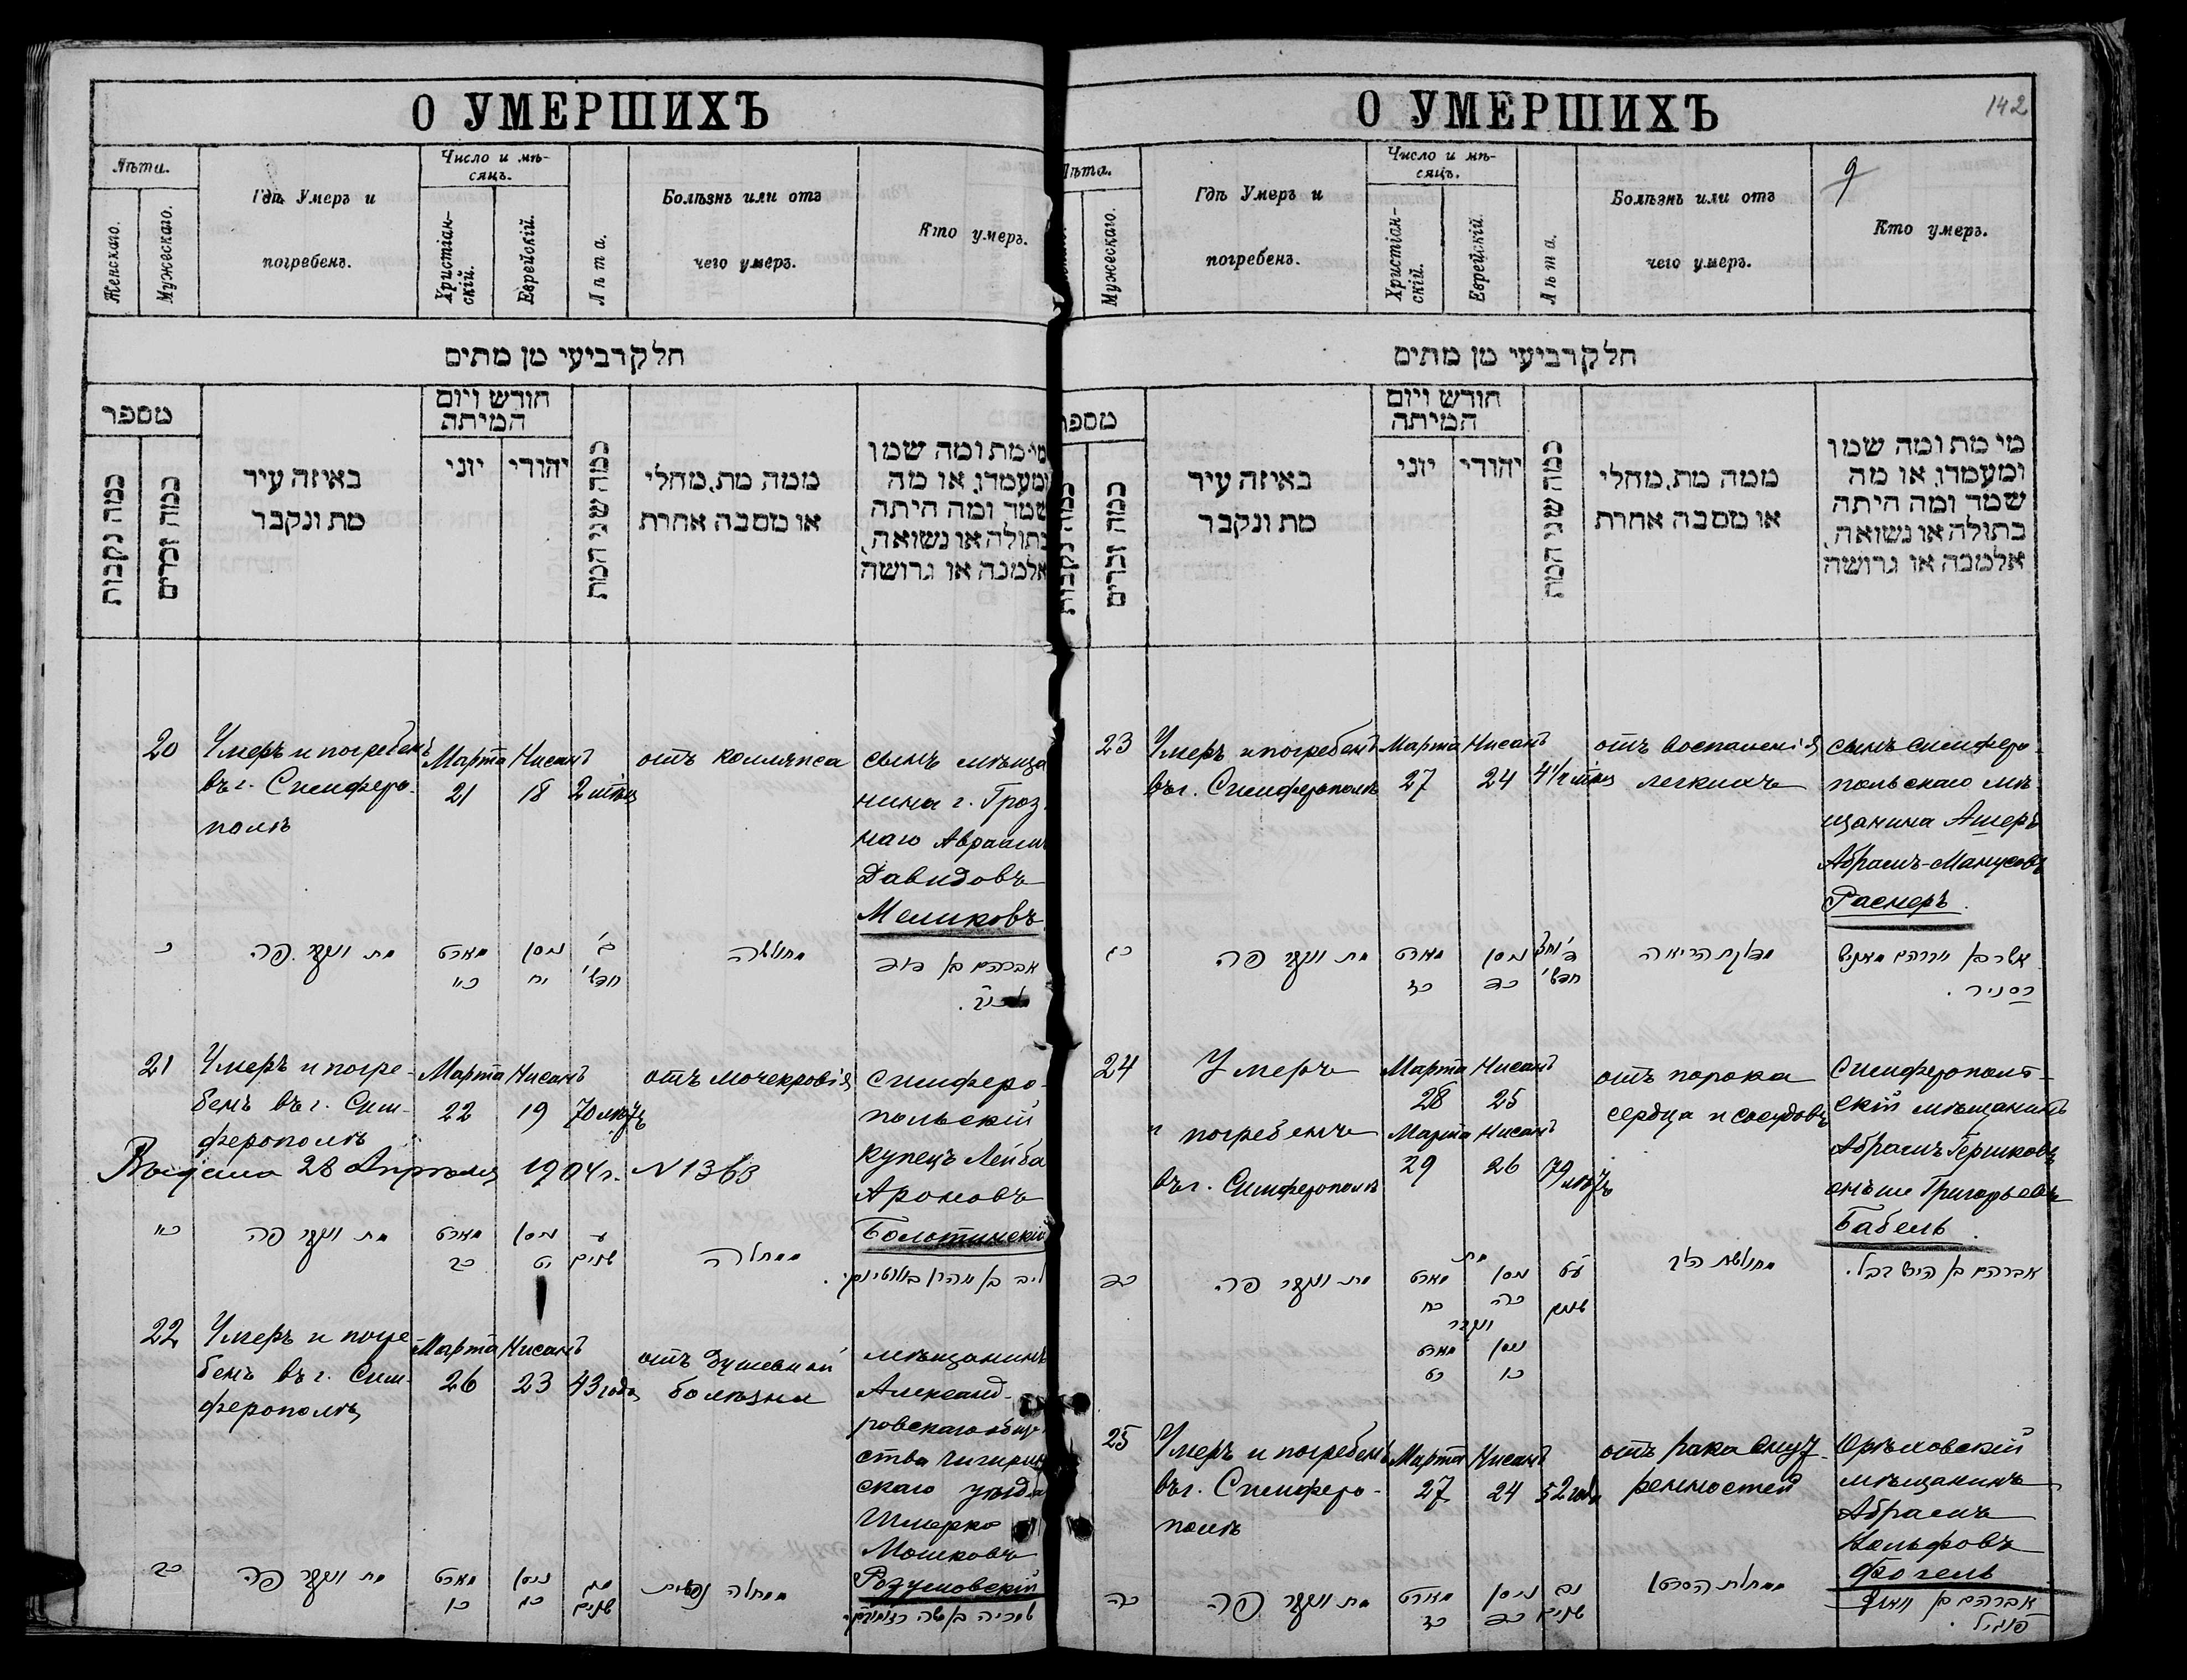 О УМЕРШИХЪ
Лѣта.
Женскаго.
Мужескаго.
Гдѣ Умеръ и
погребенъ.
Число и мѣ-
сяцъ.
Христіан-
скій.
Еврейскій.
Лѣта.
Болѣзнь или отъ
чего умеръ.
Кто умеръ.
חלק רביעי מן מתים
מספר
כמה נקבות
כמה זכרים
באיזה עיר
מת ונקבר
חודש ויום
המיתה
יוני
יהודי
כמה שני המת
ממה מת, מחלי
או מסבה אחרת
מי מת ומה שמו
ומעמדו, או מה
שמה ומה היתה
בתולה או נשואה,
אלמנה או גרושה
20
Умеръ и погребенъ
въ г. Симферо-
полѣ
Марта
21
Нисанъ
18
2 мѣц
отъ коллапса
сынъ мѣща
нина г. Гроз-
наго Авраамъ
Давидовъ
Меликовъ
כ
מת ונקבר פה
מארט
כא
ניסן
יח
ב'
חדשי'
מחולשה
אברהם בן דוד
21
Умеръ и погре-
бенъ въ г. Сим-
ферополѣ
Марта
22
Нисанъ
19
70 лѣтъ
отъ мочекровія
Симферо-
польскій
купецъ Лейба
Ароновъ
Болотинскій
Выдана 28 Апрѣля 1904 г. N 1363
כא
מת ונקבר פה
מארט
כב
ניסן
יט
ע
שנים
ממחלה
ליב בן אהרן באלטינסקי.
22
Умеръ и погре-
бенъ въ г. Сим-
ферополѣ
Марта
26
Нисанъ
23
43 года
отъ душевной
болѣзни
мѣщанинъ
Александ-
ровскаго обще
ства Чигирин
скаго уѣзда
Шмерко
Мошковъ
Розумовскій
כב
מת ונקבר פה
מארט
כו
ניסן
כג
מג
שנים
ממחלה נפשית
שמריה בן משה ראזומווסקי
О УМЕРШИХЪ
142
9
Лѣта.
Мужескаго.
Гдѣ Умеръ и
погребенъ.
Число и мѣ-
сяцъ.
Христіан-
скій.
Еврейскій.
Лѣта.
Болѣзнь или отъ
чего умеръ.
Кто умеръ.
חלק רביעי מן מתים
מספר
כמה נקבות
כמה זכרים
באיזה עיר
מת ונקבר
חודש ויום
המיתה
יוני
יהודי
כמה שני המת
ממה מת, מחלי
או מסבה אחרת
מי מת ומה שמו
ומעמדו, או מה
שמה ומה היתה
בתולה או נשואה,
אלמנה או גרושה
23
Умеръ и погребенъ
въ г. Симферополѣ
Марта
27
Нисанъ
24
4 1/2 мѣц
отъ воспаленія
легкихъ
сынъ симферо-
польскаго мѣ
щанина Ашеръ
Абрамъ-Манусовъ
Раснеръ.
כג
מת ונקבר פה
מארט
כז
ניסן
כד
ד' וחצי
חדשי'
מדלקת הריאה
אשר בן אברהם מאניש
רסניר.
24
Умеръ
и погребенъ
въ г. Симферополѣ
Марта
28
Нисанъ
25
Марта
29
Нисанъ
26
79 лѣтъ
отъ порока
сердца и сосудовъ
Симферополь-
скій мѣщанинъ
Абрамъ Гершковъ
онъ же Григорьевъ
Бабель.
כד
מת ונקבר פה
מת
מארט
כח
ניסן
כה
ונקבר
מארט
כט
ניסן
כו
עט
שנים
מחולשת הלב
אברהם בן הירש בבל.
25
Умеръ и погребенъ
въ г. Симферо-
полѣ
Марта
27
Нисанъ
24
52 года
отъ рака внут-
ренностей
Орѣховскій
мѣщанинъ
Абрамъ
Вольфовъ
Фогель
כה
מת ונקבר פה
מארט
כז
ניסן
כד
נב
שנים
ממחלת הסרטן
אברהם בן וואלף
פוגיל.